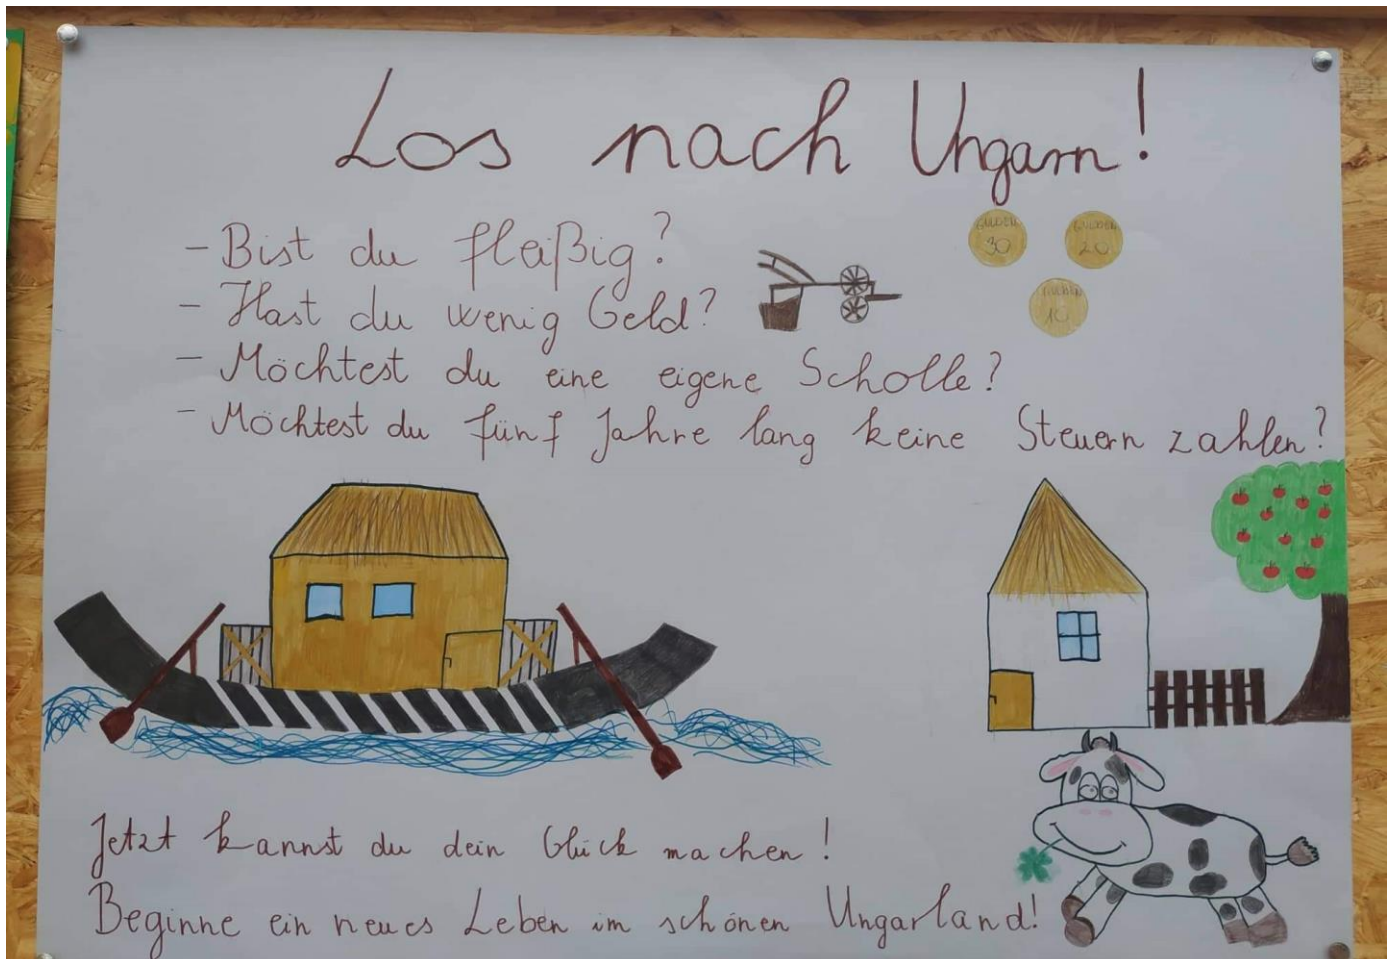 Los nach Ungarn!
- Bist du fleißig?
- Hast du wenig Geld?
- Möchtest du eine eigene Scholle?
- Möchtest du fünf Jahre lang keine Steuern zahlen?
GULDEN
30
GULDEN
20
GULDEN
10
Jetzt kannst du dein Glück machen!
Beginne ein neues Leben im schönen Ungarland!